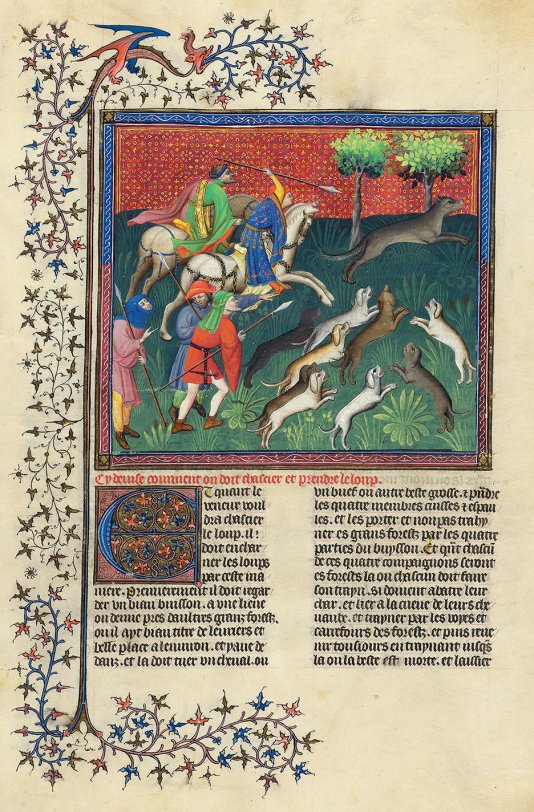 Cy devise comment on doit chascier et prendre le loup.
Et quant le
veneur voul
dra chascier
le loup. il
doit enchar
ner les loups
par ceste ma
niere. Premierement il doit regar
der un biau buisson. a une lieue
ou demie pres daultres granz forestz
ou il ayt biau titre de levriers et
belle place a lenviron. et yaue de
danz. et la doit tuer un cheval. ou
un buef ou autre beste grosse. et prendre
les quatre membres cuisses et espau
les. et les porter et non pas trahy
ner es granz forestz par les quatre
parties du buysson. Et quant chascun
de ces quatre compaignons seront
es forestz la ou chascun doit faire
son trayn. si doivent abatre leur
char. et lier a la cueue de leurs che
vaulx. et trayner par les voyes et
carrefours des forestz. et puis reve
nir tousiours en traynant iusqs
la ou la beste est morte. et laissier